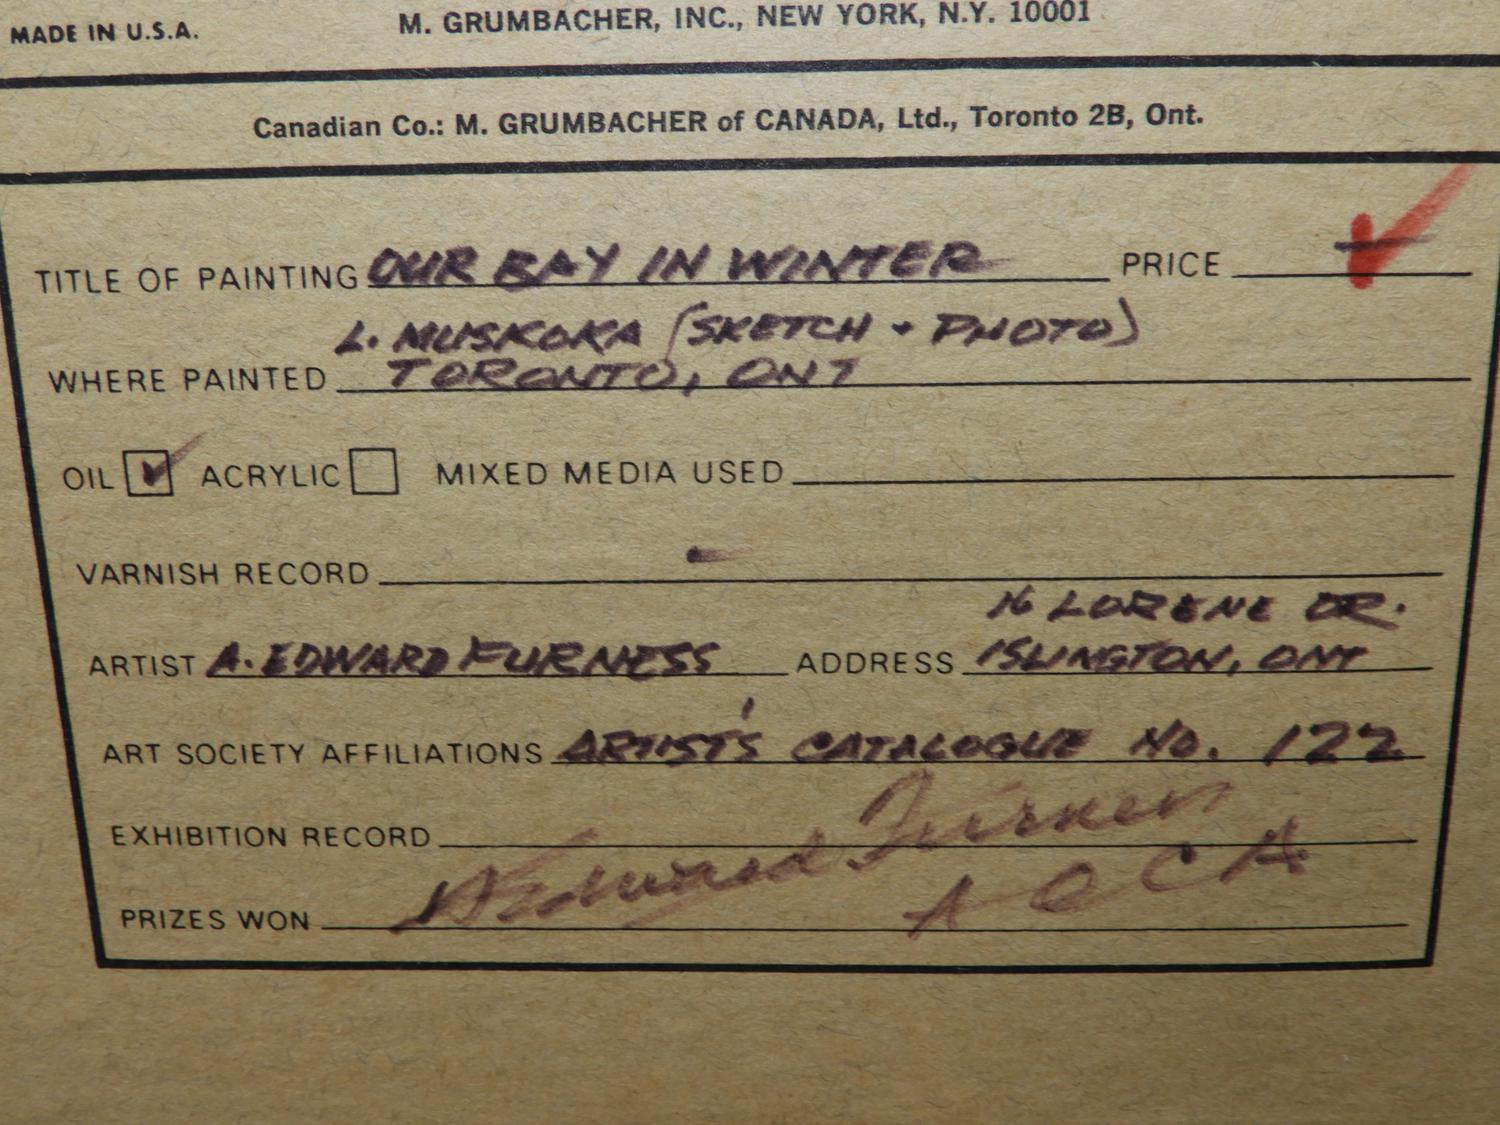 MADE IN U.S.A. M. GRUMBACHER, INC., NEW YORK, N.Y. 10001
Canadian Co.: M. GRUMBACHER of CANADA, Ltd., Toronto 2B, Ont.
TITLE OF PAINTING OUR BAY IN WINTER PRICE
L. MUSKOKA (SKETCH + PHOTO)
WHERE PAINTED TORONTO, ONT
OIL ACRYLIC MIXED MEDIA USED
VARNISH RECORD -
16 LORENE DR.
ARTIST A. EDWARD FURNESS ADDRESS ISLINGTON, ONT
ART SOCIETY AFFILIATIONS ARTIST'S CATALOGUE NO. 122
EXHIBITION RECORD
A Edward Furness
AOCA
PRIZES WON